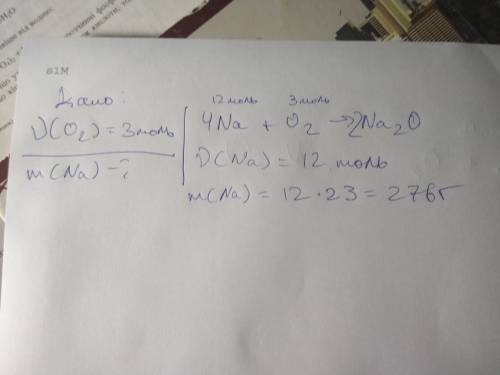 в1М
Дано:
ν(O₂) = 3 моль
m(Na) - ?
12 моль 3 моль
4Na + O₂ → 2Na₂O
ν(Na) = 12 моль
m(Na) = 12 · 23 = 276г